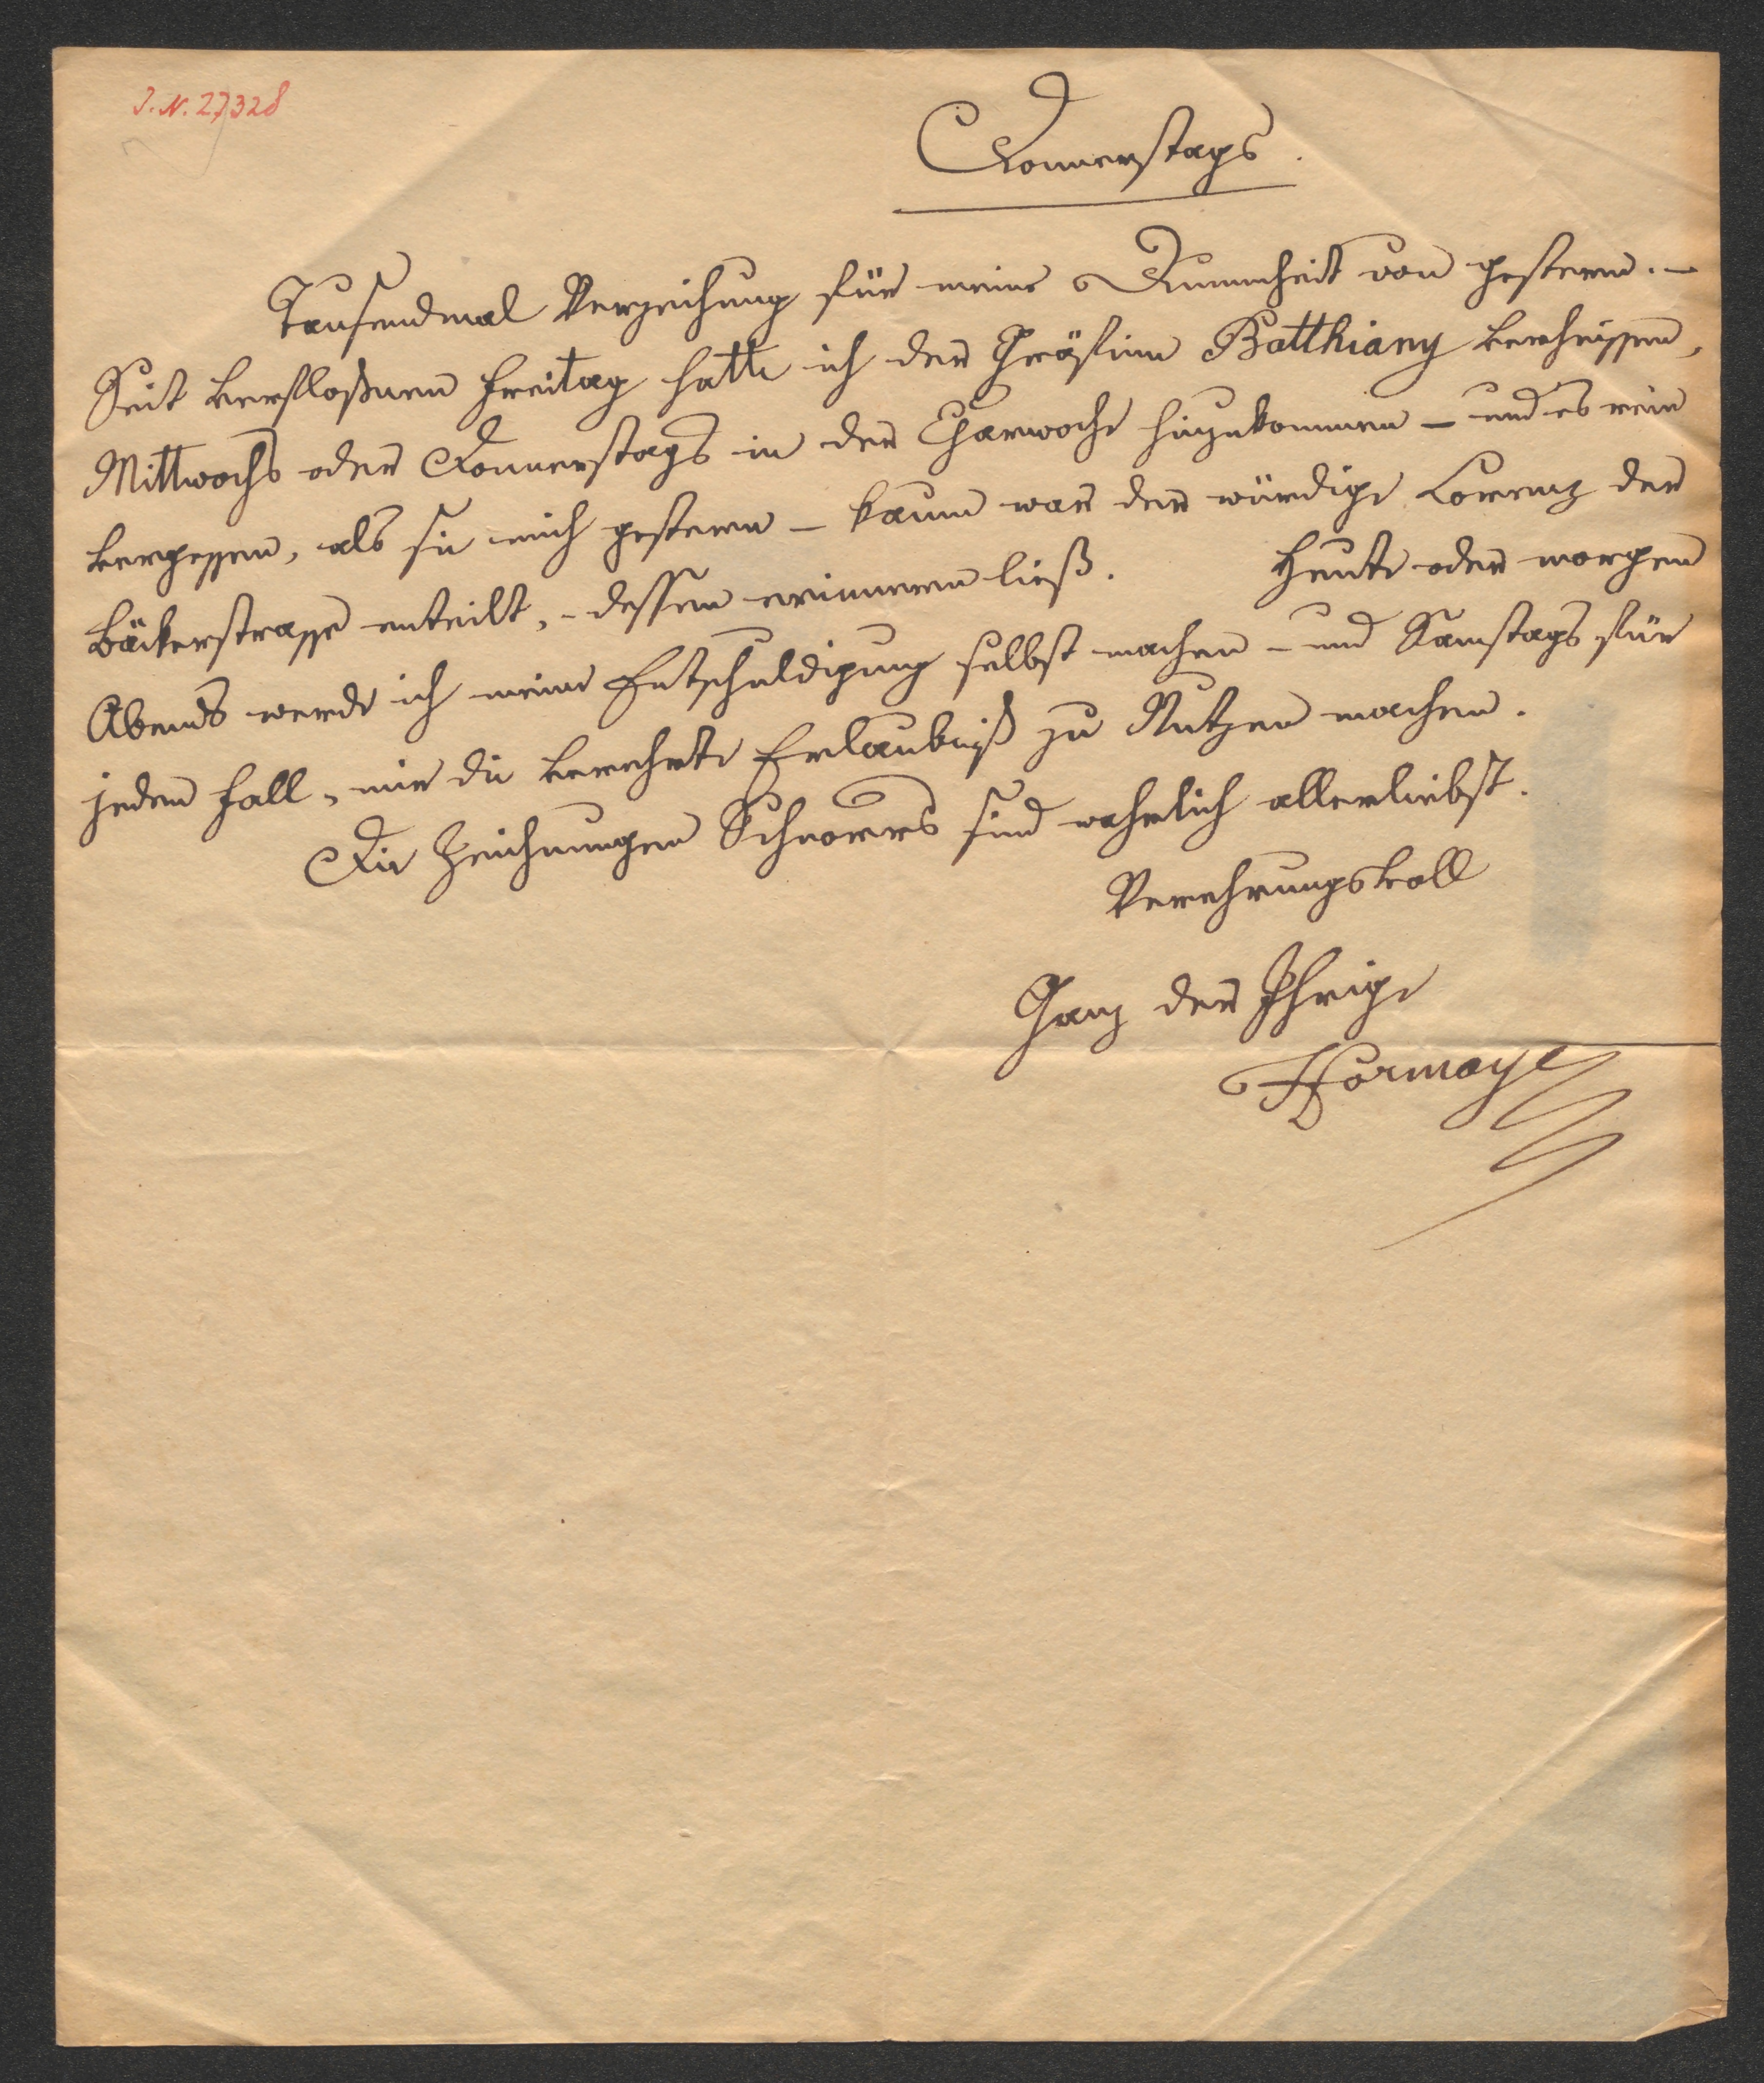 J. N. 27328
Donnerstags.
Tausendmal Verzeihung für meine Dummheit von gestern. –
Seit verfloßnen Freitag hatte ich der Gräfinn Batthiany verheissen,
Mittwochs oder Donnerstags in der Charwoche hinzukommen – und es rein
vergessen, als sie mich gestern – kaum war der würdige Lorenz der
Bäckerstrasse enteilt, – dessen erinnern ließ. Heute oder morgen
Abends werde ich meine Entschuldigung selbst machen – und Samstags für
jeden Fall, mir die verehrte Erlaubniß zu Nutzen machen.
Die Zeichnungen Schnorrs sind wahrlich allerliebst.
Verehrungsvoll
Ganz der Ihrige
Hormayr